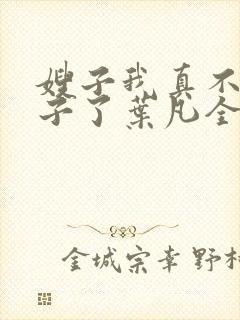 嫂子我真不
子了葉凡全
金城宗幸野村